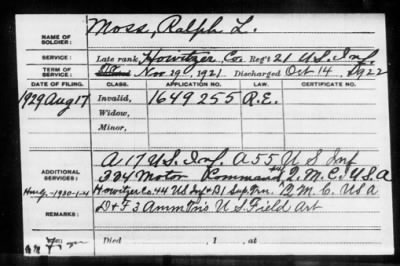 NAME OF SOLDIER: Moss, Ralph L.
SERVICE: Late rank, Howitzer Co. Reg't 21 U.S. Inf.
TERM OF SERVICE: Nov 19, 1921, Discharged Oct 14, 1922
DATE OF FILING. CLASS. APPLICATION NO. LAW. CERTIFICATE NO.
1929 Aug 17 Invalid, 1649255 R.E.
Widow,
Minor,
A 17 U.S. Inf A 55 U S Inf
ADDITIONAL SERVICES: 324 Motor Command Q.M.C. U.S.A
Howitzer Co. 44 US Inf & B1 Sup. Trn. Q M.C. US A
REMARKS: D & F 3 Amm Tn's U.S. Field Art
Died , 1 , at